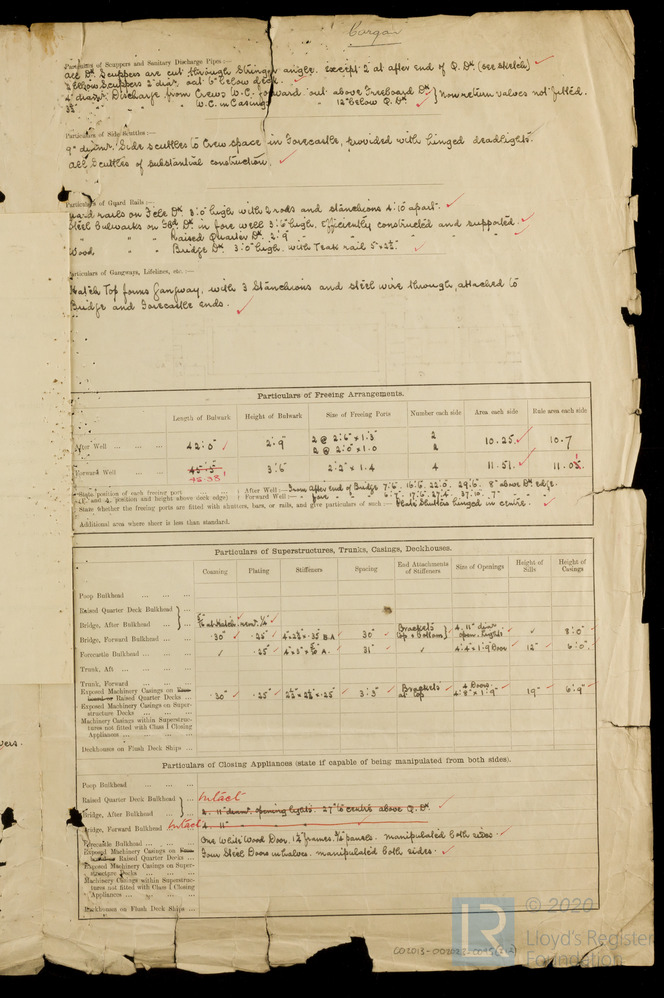 Corgan
Particulars of Scuppers and Sanitary Discharge Pipes :—
All Dk Scuppers are cut through Stringer angle. except 2 at after end of Q. Dk (see sketch)
2 Elbow Scuppers 2" diar. out 6" below deck.
4" diamr. Discharge from Crews W.C. forward out above Freeboard Dk } Non return valves not fitted.
3½" " " W.C. in Casings " 12" below Q. Dk
Particulars of Side Scuttles :—
9" diamr. Side scuttles to Crew space in Forecastle, provided with hinged deadlights.
All Scuttles of substantial construction.
Particulars of Guard Rails :—
Guard rails on F'cle Dk. 3'.0" high with 2 rods and stanchions 4'.10" apart.
Steel Bulwarks on Dk. in fore well 3'.6" high. Efficiently constructed and supported.
" " " Raised Quarter Dk 2'.9" " " " "
Wood " " Bridge Dk. 3'.0" high. with Teak rail 5" x 2½".
Particulars of Gangways, Lifelines, etc. :—
Hatch Top forms gangway, with 3 Stanchions and steel wire through, attached to
Bridge and Forecastle ends.
Particulars of Freeing Arrangements.
Length of Bulwark Height of Bulwark Size of Freeing Ports Number each side Area each side Rule area each side
After Well ... ... ... 42'.0" 2'.9" 2 @ 2'.6" x 1'.3" 2 10.25 10.7
2 @ 2'.0" x 1.0 2
Forward Well ... ... 45'.5" 3'.6" 2'.2" x 1.4 4 11.51 11.05
45.33
State position of each freeing port ... ... After Well :— From After end of Bridge 7'.6" 16'.6" 22'.0" 29'.6" 8" above Dk edge.
(F. and A. position and height above deck edge) Forward Well :— " fore " " 6'.7" 17'.6" 27.4 37'.10" 7" " "
State whether the freeing ports are fitted with shutters, bars, or rails, and give particulars of such :— Plate Shutters hinged in centre.
Additional area where sheer is less than standard.
Particulars of Superstructures, Trunks, Casings, Deckhouses.
Coaming Plating Stiffeners Spacing End Attachments of Stiffeners Size of Openings Height of Sills Height of Casings
Poop Bulkhead ... ... ...
Raised Quarter Deck Bulkhead }
Bridge, After Bulkhead ... } ...
Bridge, Forward Bulkhead ... ... ·30" ·25" 4" x 2½" x ·35 B.A 30" Brackets top & bottom } 4. 11" diar. open. lights 8'.0"
Forecastle Bulkhead ... ... ·25" 31" 4'.4" x 1'.9 Door 12" 6'.0"
Trunk, Aft ... ... ...
Trunk, Forward ... ... ...
Exposed Machinery Casings on Raised Quarter Decks ... ·30" ·25" 2½" x 2½" x ·25 3'.3" Brackets at top 4 Doors. 4'.8" x 1'.9" 19" 6'.9"
Exposed Machinery Casings on Superstructure Decks ... ...
Machinery Casings within Superstructures not fitted with Class 1 Closing Appliances ... ... ...
Deckhouses on Flush Deck Ships ...
Particulars of Closing Appliances (state if capable of being manipulated from both sides).
Poop Bulkhead ... ... ...
Raised Quarter Deck Bulkhead } Intact
Bridge, After Bulkhead ... } ... 2. 11" diamr. opening lights. 27" to centre above Q. Dk
Bridge, Forward Bulkhead Intact 4. 11" " "
Forecastle Bulkhead ... ... One White Wood Door. 1¾" frames. ¾" panels. manipulated both sides.
Exposed Machinery Casings on Raised Quarter Decks ... Four Steel Doors in halves. manipulated both sides.
Exposed Machinery Casings on Superstructure Decks ... ...
Machinery Casings within Superstructures not fitted with Class 1 Closing Appliances ... ... ...
Deckhouses on Flush Deck Ships ...
© 2020
LR
Lloyd's Register
Foundation